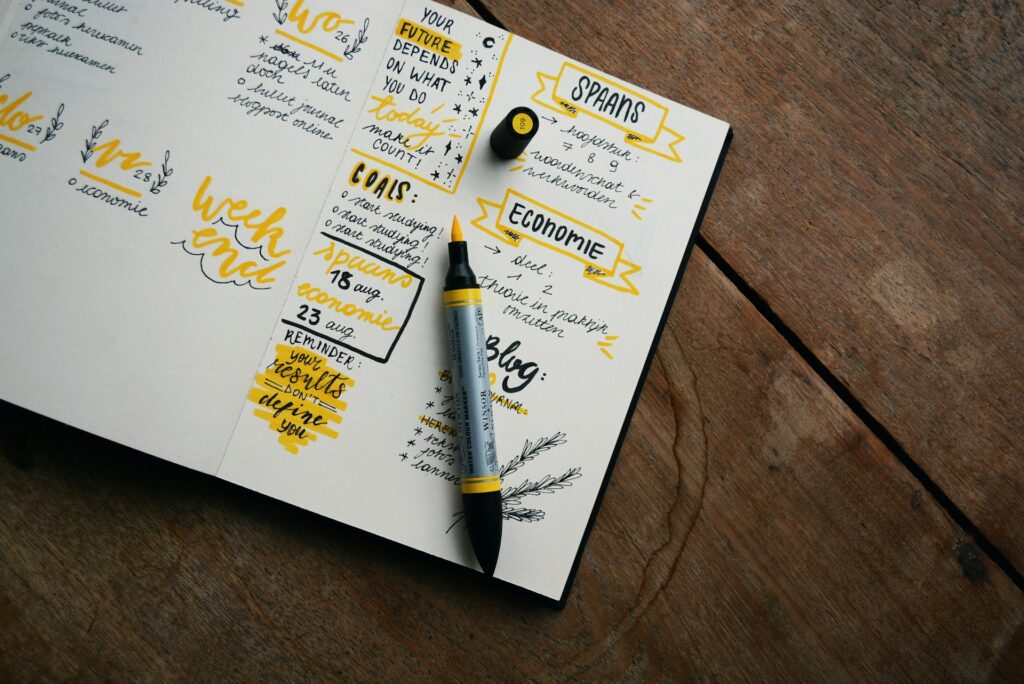 journal
o fotos herexamen
o herexamen
do 27
wo 26
nagels laten
doen
o bullet journal
blogpost online
vr 28
o economie
week
end
YOUR
FUTURE
DEPENDS
ON WHAT
YOU DO
today
make it
COUNT!
GOALS:
o start studying!
o start studying!
o start studying!
spaans
18 aug.
economie
23 aug.
REMINDER:
your
results
DON'T
define
you
109
SPAANS
→ hoofdstuk:
7 8 9
woordenschat &
werkwoorden
ECONOMIE
→ deel:
1 2
theorie in praktijk
omzetten
Blog:
WINSOR
WATER COLOUR MARKER